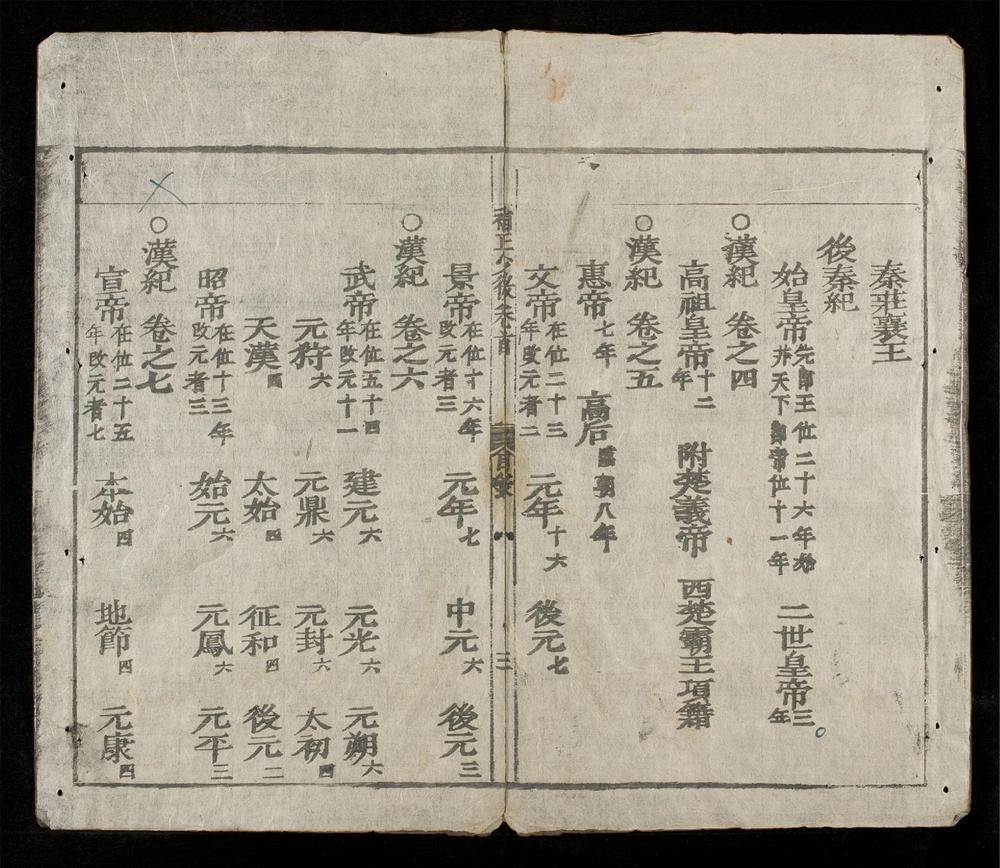 秦莊襄王
後秦紀
始皇帝 先卽王位二十六年始并天下卽帝位十一年 二世皇帝 三年
○漢紀 卷之四
高祖皇帝 十二年 附楚義帝 西楚霸王項籍
○漢紀 卷之五
惠帝 七年 高后 臨朝八年
文帝 在位二十三年改元者二 元年 十六 後元 七
卷首
目錄
三
景帝 在位十六年改元者三 元年 七 中元 六 後元 三
○漢紀 卷之六
武帝 在位五十四年改元十一 建元 六 元光 六 元朔 六
元狩 六 元鼎 六 元封 六 太初 四
天漢 四 太始 四 征和 四 後元 二
昭帝 在位十三年改元者三 始元 六 元鳳 六 元平 三
○漢紀 卷之七
宣帝 在位二十五年改元者七 本始 四 地節 四 元康 四